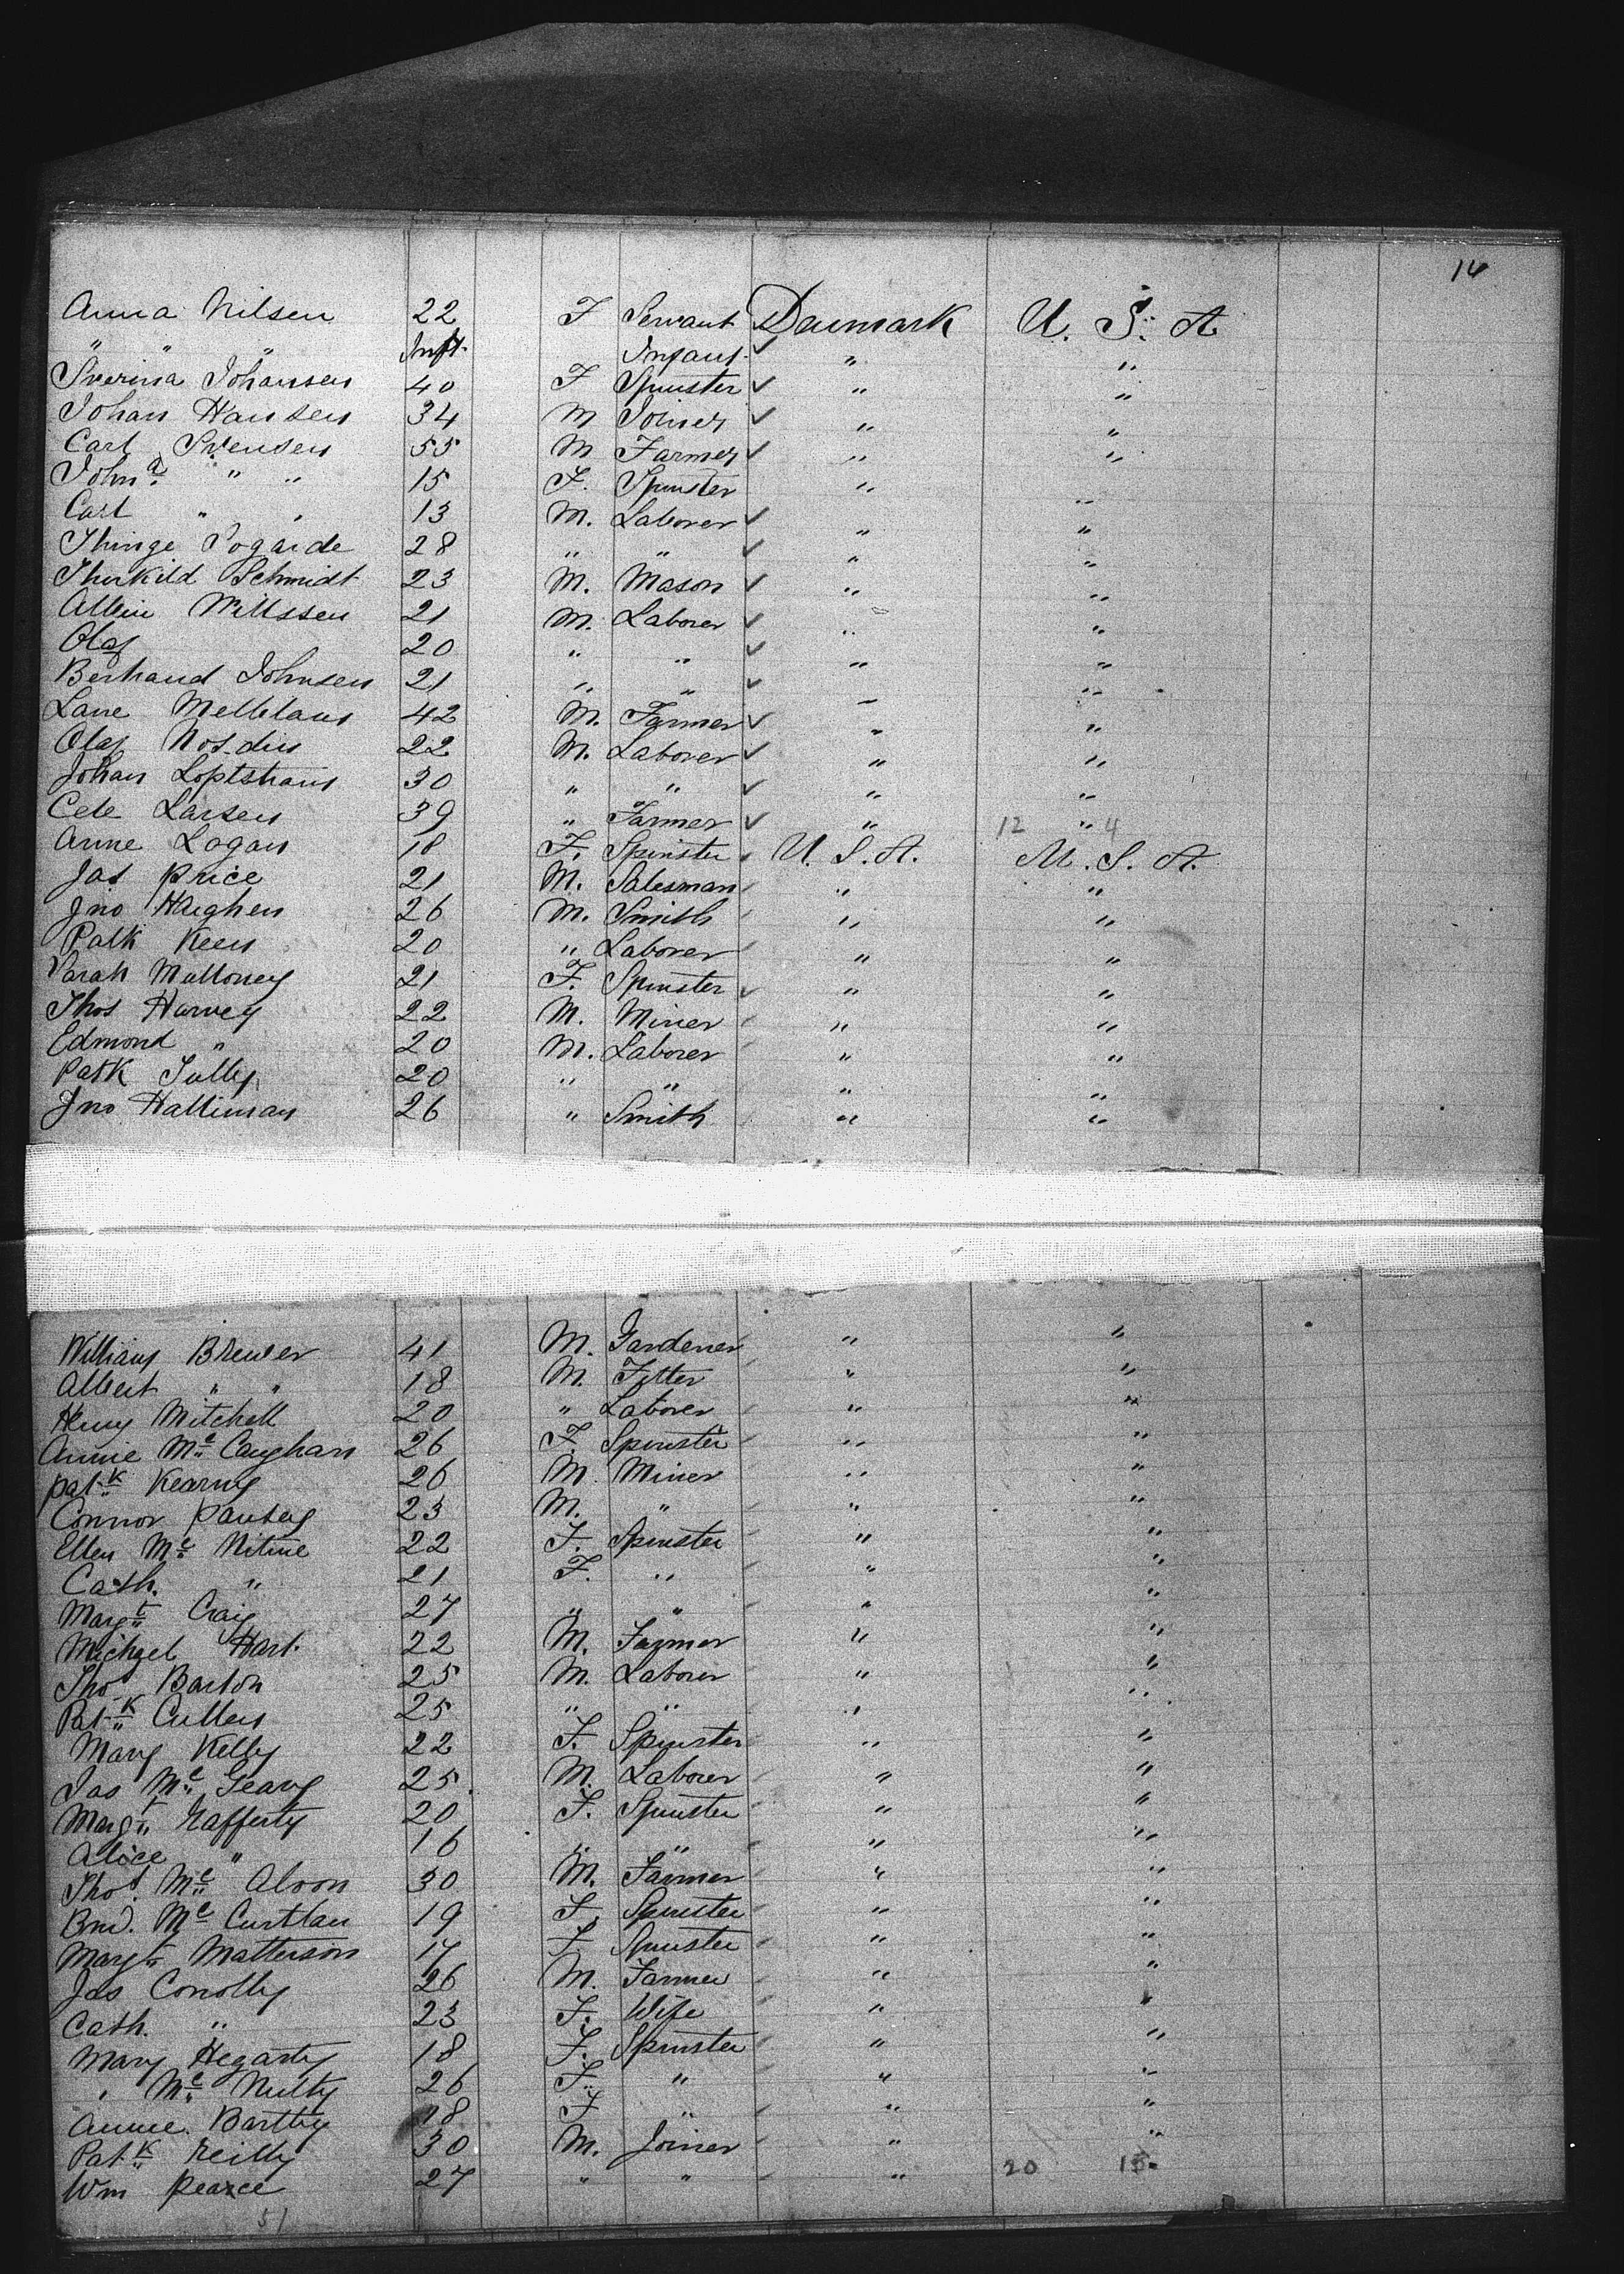 14
Anna Nilsen 22 F Servant Denmark U. S. A
" " " Inft. Infant " "
Sverina Johansen 40 F Spinster " "
Johan Hansen 34 M Joiner " "
Carl Svensen 55 M Farmer " "
Johnª " " 15 F. Spinster " "
Carl " " 13 M. Laborer " "
Thinge Sogarde 28 " " " "
Therkild Schmidt 23 M. Mason " "
Albin Willssen 21 M. Laborer " "
Olaf 20 " " " "
Berhand Johnsen 21 " " " "
Lane Melblans 42 M. Farmer " "
Olaf 22 M. Laborer " "
Johan Loptshans 30 " " " "
Cele Larsen 39 " Farmer " 12 " 4
Anne Logan 18 F. Spinster U. S. A. U. S. A.
Jas Price 21 M. Salesman " "
Jno Haighen 26 M. Smith " "
Patk Keen 20 " Laborer " "
Sarah Mulloney 21 F. Spinster " "
Thos Harvey 22 M. Miner " "
Edmond " 20 M. Laborer " "
Patk Tully 20 " " " "
Jno Hallinan 26 " Smith " "
William Brewer 41 M. Gardener " "
Albert " " 18 M. Fitter " "
Henry Mitchell 20 " Laborer " "
Annie Mc Caughan 26 F. Spinster " "
Patk Kearny 26 M Miner " "
Connor 23 M. " " "
Ellen Mc Nitine 22 F. Spinster " "
Cath. " 21 F. " " "
Margt Craig 27 " " " "
Michael Hart 22 M. Farmer " "
Thos Barton 25 M. Laborer " "
Patk Cullen 25 " " " "
Mary Kelly 22 F. Spinster " "
Jas Mc Geary 25. M. Laborer " "
Margt Rafferty 20 F. Spinster " "
Alice " 16 " " " "
Thos. Mc Aloon 30 M. Farmer " "
Brid. Mc Curtlan 19 F. Spinster " "
Margt Matterson 17 F Spinster " "
Jas Conolly 26 M. Farmer " "
Cath. " 23 F. Wife " "
Mary Hegarty 18 F. Spinster " "
" Mc Nulty 26 F. " " "
Annie Bartley 18 F " " "
Patk Reilly 30 M. Joiner " "
Wm Pearce 27 " " " 20 15
51